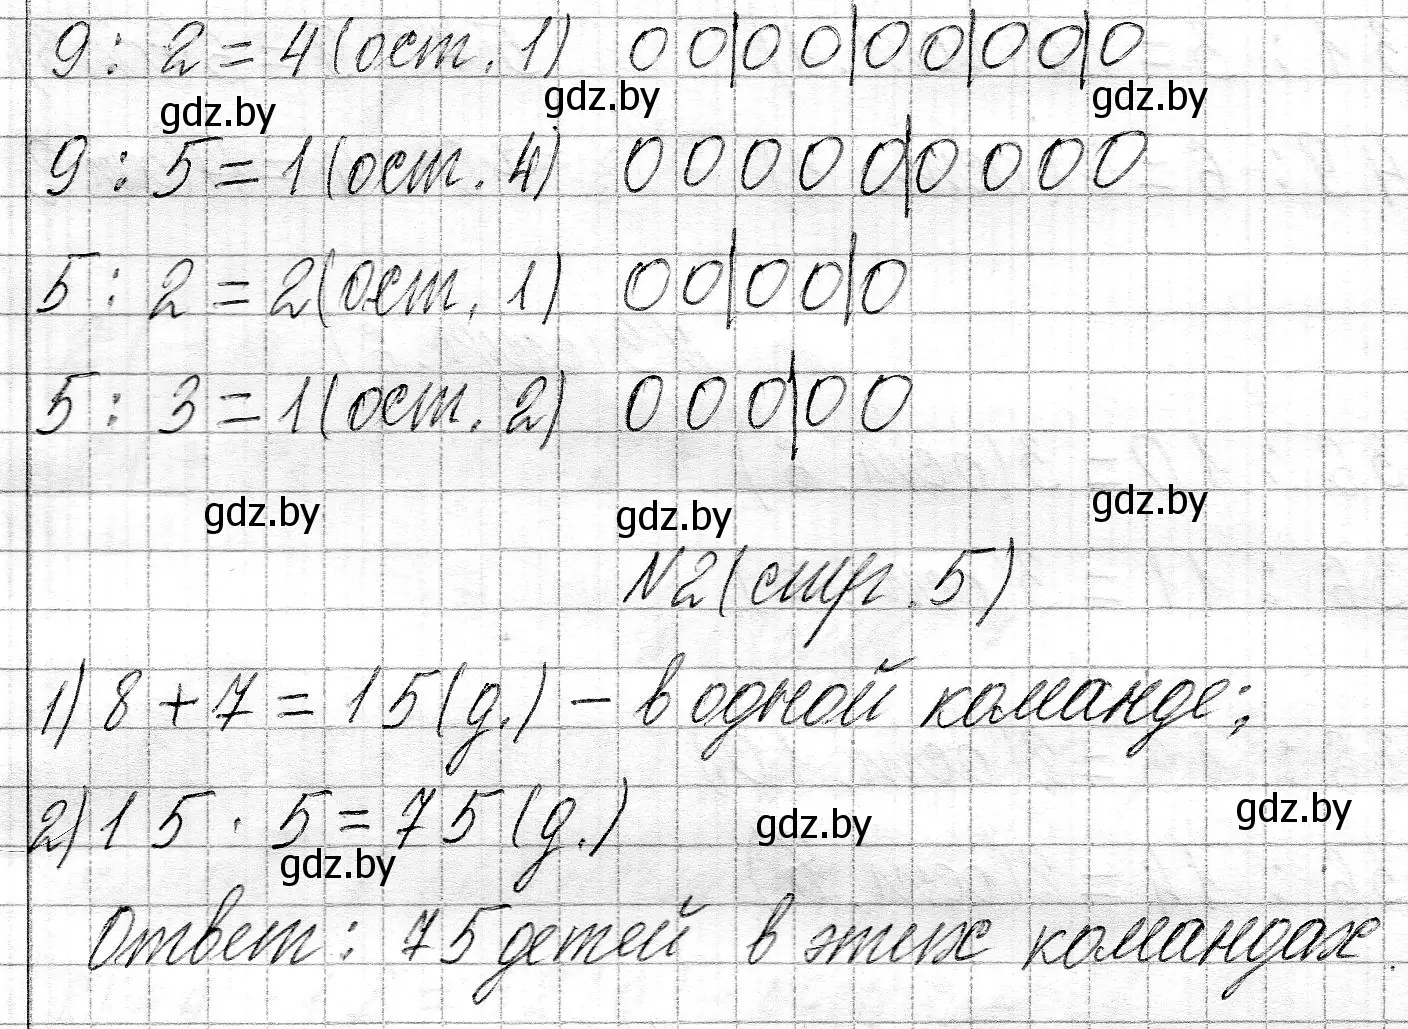 9 : 2 = 4 (ост. 1) 0 0 | 0 0 | 0 0 | 0 0 | 0
gdz.by gdz.by gdz.by
9 : 5 = 1 (ост. 4) 0 0 0 0 0 | 0 0 0 0
5 : 2 = 2 (ост. 1) 0 0 | 0 0 | 0
5 : 3 = 1 (ост. 2) 0 0 0 | 0 0
gdz.by gdz.by gdz.by
N2 (стр. 5)
1) 8 + 7 = 15 (д.) – в одной команде;
2) 15 · 5 = 75 (д.)
gdz.by gdz.by gdz.by
Ответ: 75 детей в этих командах.